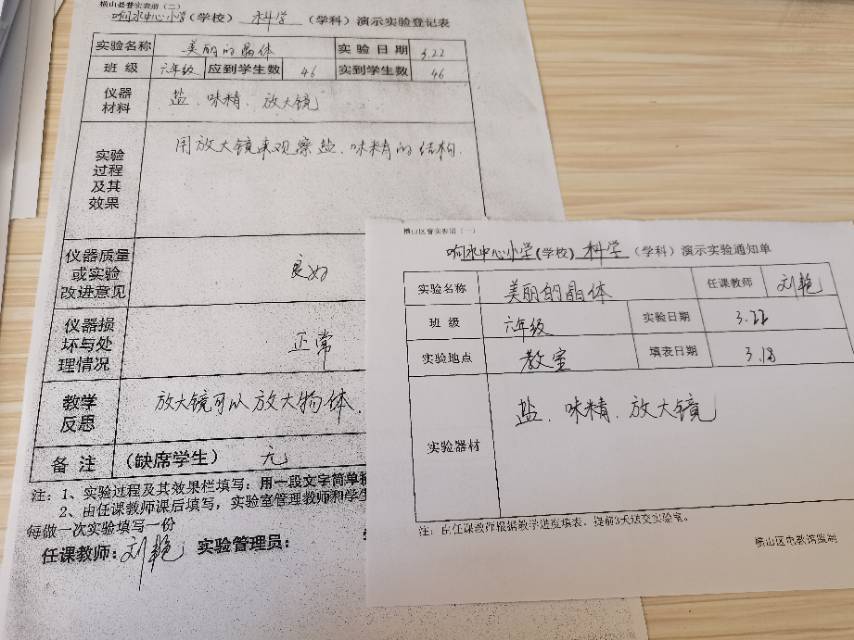 横山县普实表册（二）
响水中心小学（学校） 科学 （学科）演示实验登记表
实验名称 美丽的晶体 实验日期 3.22
班级 六年级 应到学生数 46 实到学生数 46
仪器
材料
盐、味精、放大镜
实验
过程
及其
效果
用放大镜来观察盐、味精的结构.
仪器质量
或实验
改进意见
良好
仪器损
坏与处
理情况
正常
教学
反思
放大镜可以放大物体.
备注 （缺席学生） 无
注：1、实验过程及其效果栏填写：用一段文字简单
2、由任课教师课后填写，实验室管理教师和学生
每做一次实验填写一份
任课教师：刘艳 实验管理员：
横山区普实表册（一）
响水中心小学（学校） 科学 （学科）演示实验通知单
实验名称 美丽的晶体 任课教师 刘艳
班级 六年级 实验日期 3.22
实验地点 教室 填表日期 3.18
实验器材 盐、味精、放大镜
注：由任课教师根据教学进度填表，提前3天送交实验室。
横山区电教馆监制